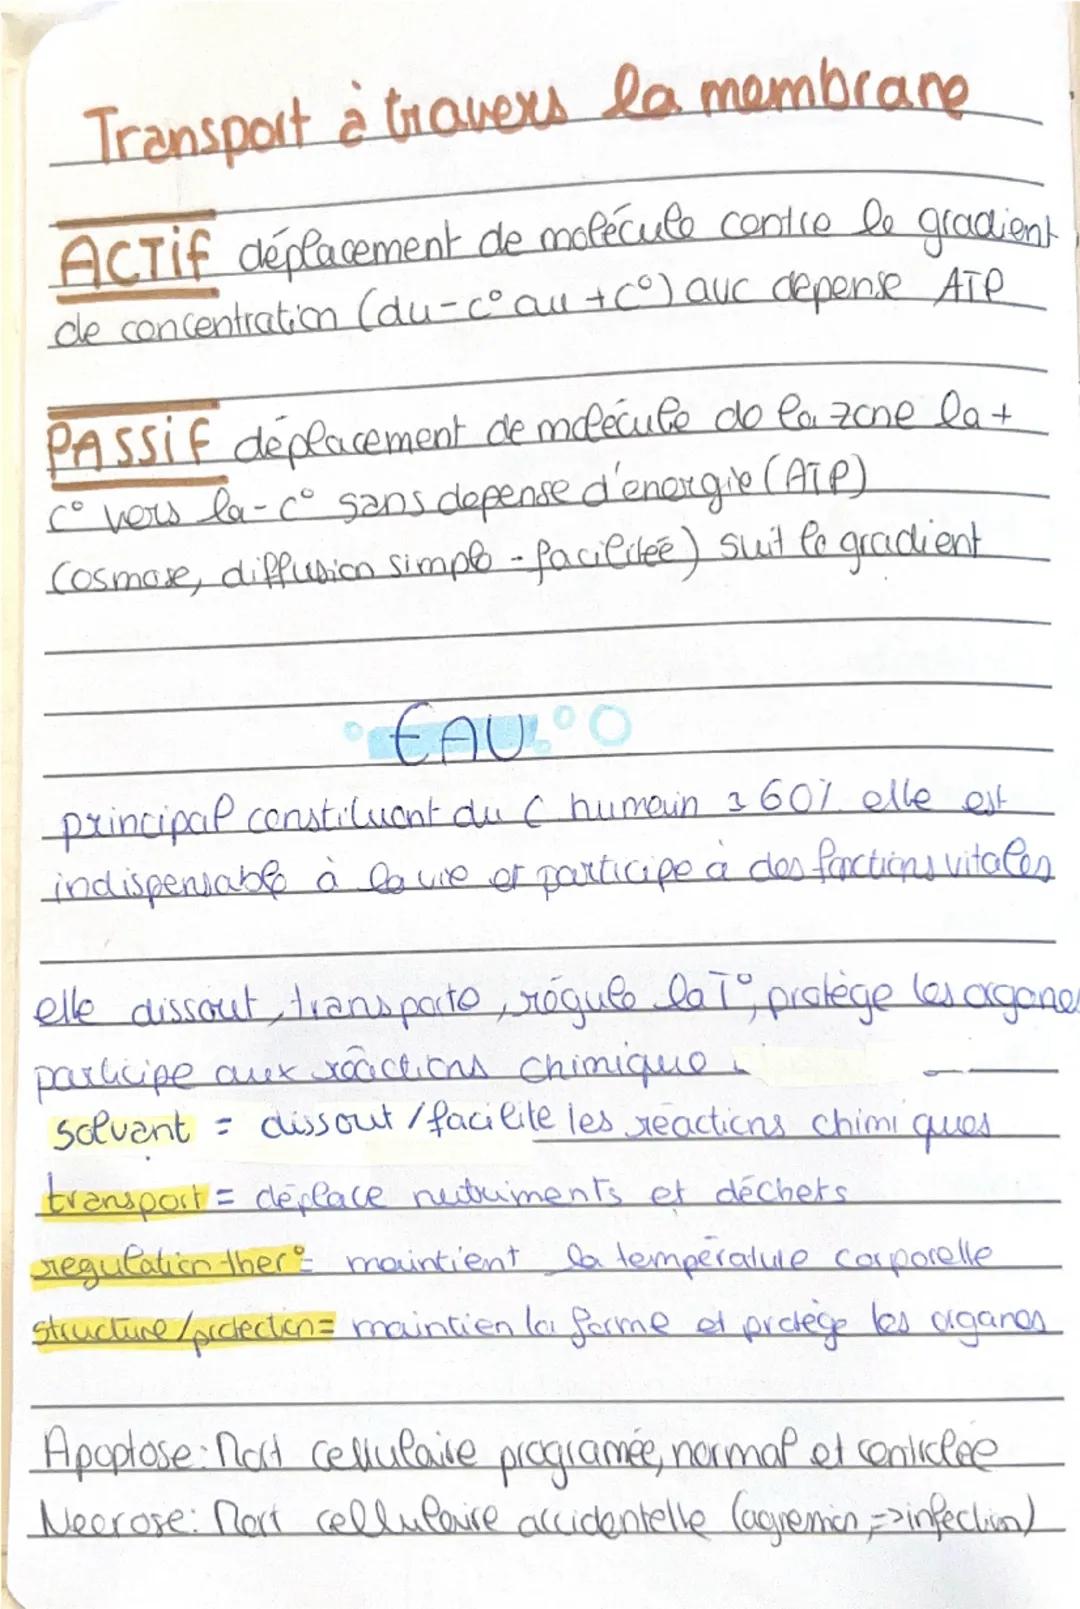 Transport à travers la membrane
ACTIF déplacement de molécule contre le gradient
de concentration (du - c° au + c°) avc depense ATP
PASSIF déplacement de molécule de la zone la +
c° vers la - c° sans depense d'énergie (ATP)
(osmose, diffusion simple - facilitée) suit le gradient
EAU
principal constituant du C humain 60% elle est
indispensable à la vie et participe à des fonctions vitales
elle dissout, transporte, régule la T°, protège les organes
participe aux réactions chimique
solvant = dissout / facilite les réactions chimiques
transport = déplace nutriments et déchets
regulation ther° = maintient la température corporelle
structure/protection = maintien la forme et protège les organes
Apoptose: Mort cellulaire programée, normal et controlée
Necrose: Mort cellulaire accidentelle (agremion, => infection)